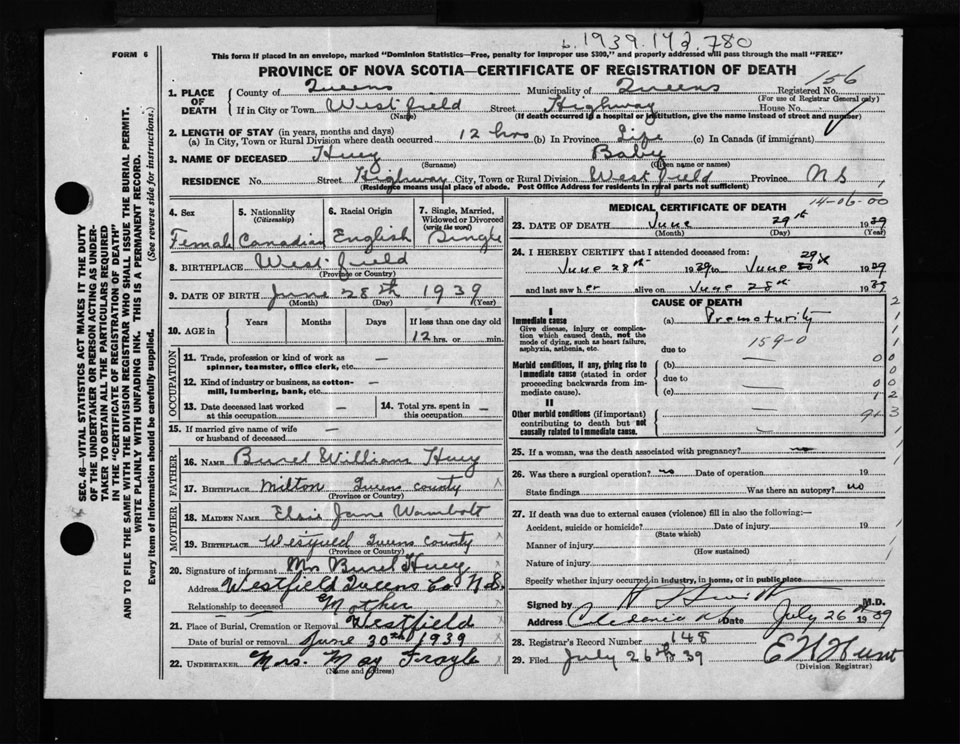 1939.142.780
FORM 6
This form if placed in an envelope, marked "Dominion Statistics—Free, penalty for improper use $300," and properly addressed will pass through the mail "FREE"
PROVINCE OF NOVA SCOTIA—CERTIFICATE OF REGISTRATION OF DEATH
156
1. PLACE OF DEATH County of Queens Municipality of Queens Registered No.
(For use of Registrar General only)
If in City or Town Westfield Street Highway House No.
(Name) (If death occurred in a hospital or institution, give the name instead of street and number)
2. LENGTH OF STAY (in years, months and days)
(a) In City, Town or Rural Division where death occurred 12 hrs (b) In Province Life (c) In Canada (if immigrant)
3. NAME OF DECEASED Huey Baby
(Surname) (Given name or names)
RESIDENCE No. Street Highway City, Town or Rural Division Westfield Province N S
(Residence means usual place of abode. Post Office Address for residents in rural parts not sufficient)
4. Sex 5. Nationality (Citizenship) 6. Racial Origin 7. Single, Married, Widowed or Divorced (write the word)
Female Canadian English Single
8. BIRTHPLACE Westfield
(Province or Country)
9. DATE OF BIRTH June 28th 1939
(Month) (Day) (Year)
10. AGE in Years Months Days If less than one day old
12 hrs. or min.
OCCUPATION
11. Trade, profession or kind of work as spinner, teamster, office clerk, etc. —
12. Kind of industry or business, as cotton-mill, lumbering, bank, etc. —
13. Date deceased last worked at this occupation — 14. Total yrs. spent in this occupation —
15. If married give name of wife or husband of deceased —
FATHER
16. NAME Burel William Huey
17. BIRTHPLACE Milton Queens County
(Province or Country)
MOTHER
18. MAIDEN NAME Elsie Jane Wambolt
19. BIRTHPLACE Westfield Queens County
(Province or Country)
20. Signature of informant Mrs Burel Huey
Address Westfield Queens Co N.S.
Relationship to deceased Mother
21. Place of Burial, Cremation or Removal Westfield
Date of burial or removal June 30th 1939
22. UNDERTAKER Mrs. May
(Name and Address)
MEDICAL CERTIFICATE OF DEATH
14-06-00
23. DATE OF DEATH June 29th 1939
(Month) (Day) (Year)
24. I HEREBY CERTIFY that I attended deceased from:
June 28th 1939 to June 29 1939
and last saw her alive on June 28th 1939
CAUSE OF DEATH
I
Immediate cause (a) Prematurity
Give disease, injury or complication which caused death, not the mode of dying, such as heart failure, asphyxia, asthenia, etc.
159-0
due to
Morbid conditions, if any, giving rise to immediate cause (stated in order proceeding backwards from immediate cause). (b) —
due to —
(c) —
II
Other morbid conditions (if important) contributing to death but not causally related to immediate cause. —
25. If a woman, was the death associated with pregnancy? no
26. Was there a surgical operation? no Date of operation 19
State findings Was there an autopsy? no
27. If death was due to external causes (violence) fill in also the following:—
Accident, suicide or homicide? Date of injury 19
(State which)
Manner of injury
(How sustained)
Nature of injury
Specify whether injury occurred in industry, in home, or in public place
Signed by M.D.
Address Caledonia Date July 26th 1939
28. Registrar's Record Number 148
29. Filed July 26th 39 E H Hunt
(Division Registrar)
SEC. 46—VITAL STATISTICS ACT MAKES IT THE DUTY
OF THE UNDERTAKER OR PERSON ACTING AS UNDER-
TAKER TO OBTAIN ALL THE PARTICULARS REQUIRED
IN THE "CERTIFICATE OF REGISTRATION OF DEATH"
AND TO FILE THE SAME WITH THE DIVISION REGISTRAR WHO SHALL ISSUE THE BURIAL PERMIT.
WRITE PLAINLY WITH UNFADING INK. THIS IS A PERMANENT RECORD.
Every item of Information should be carefully supplied. (See reverse side for instructions.)